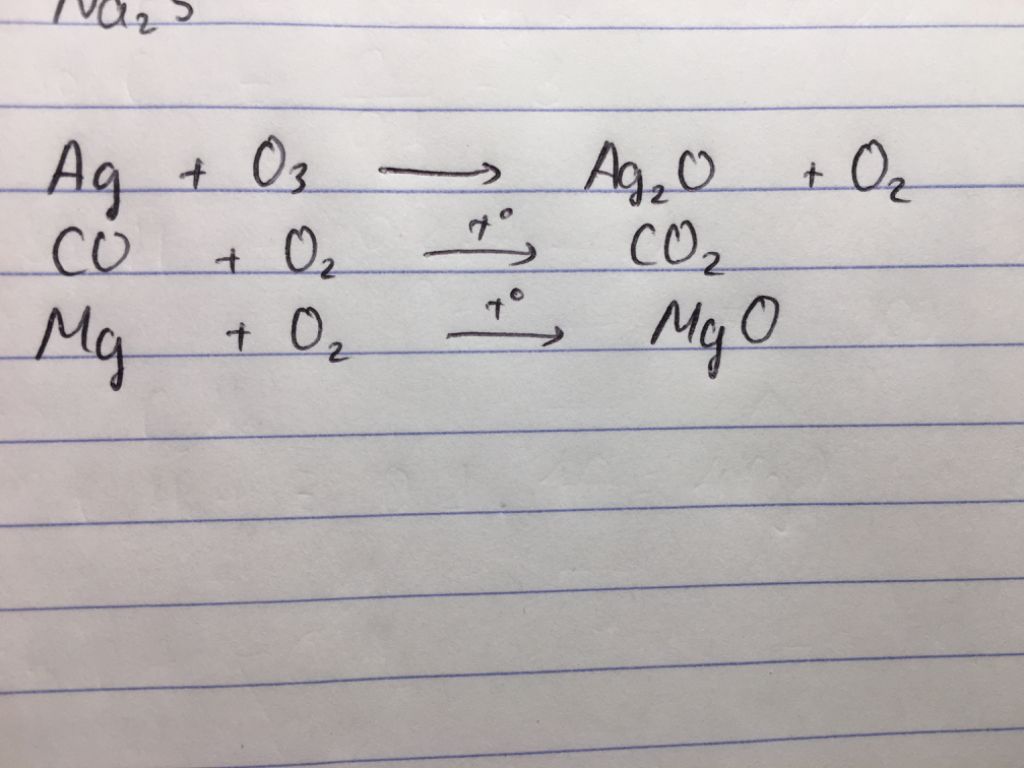 Na₂S
Ag + O₃ ⟶ Ag₂O + O₂
CO + O₂ ⟶ t° CO₂
Mg + O₂ ⟶ t° MgO